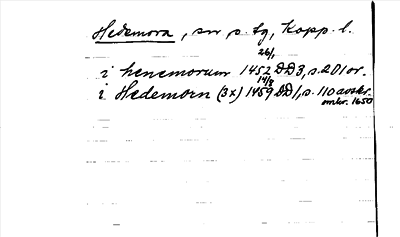 Hedemora, sn s. tg, Kopp. l.
26/1
i henemorum 1452 DD3, s. 201 or.
14/8
i Hedemorn (3x) 1459 DD1, s. 110 avskr.
omkr. 1650